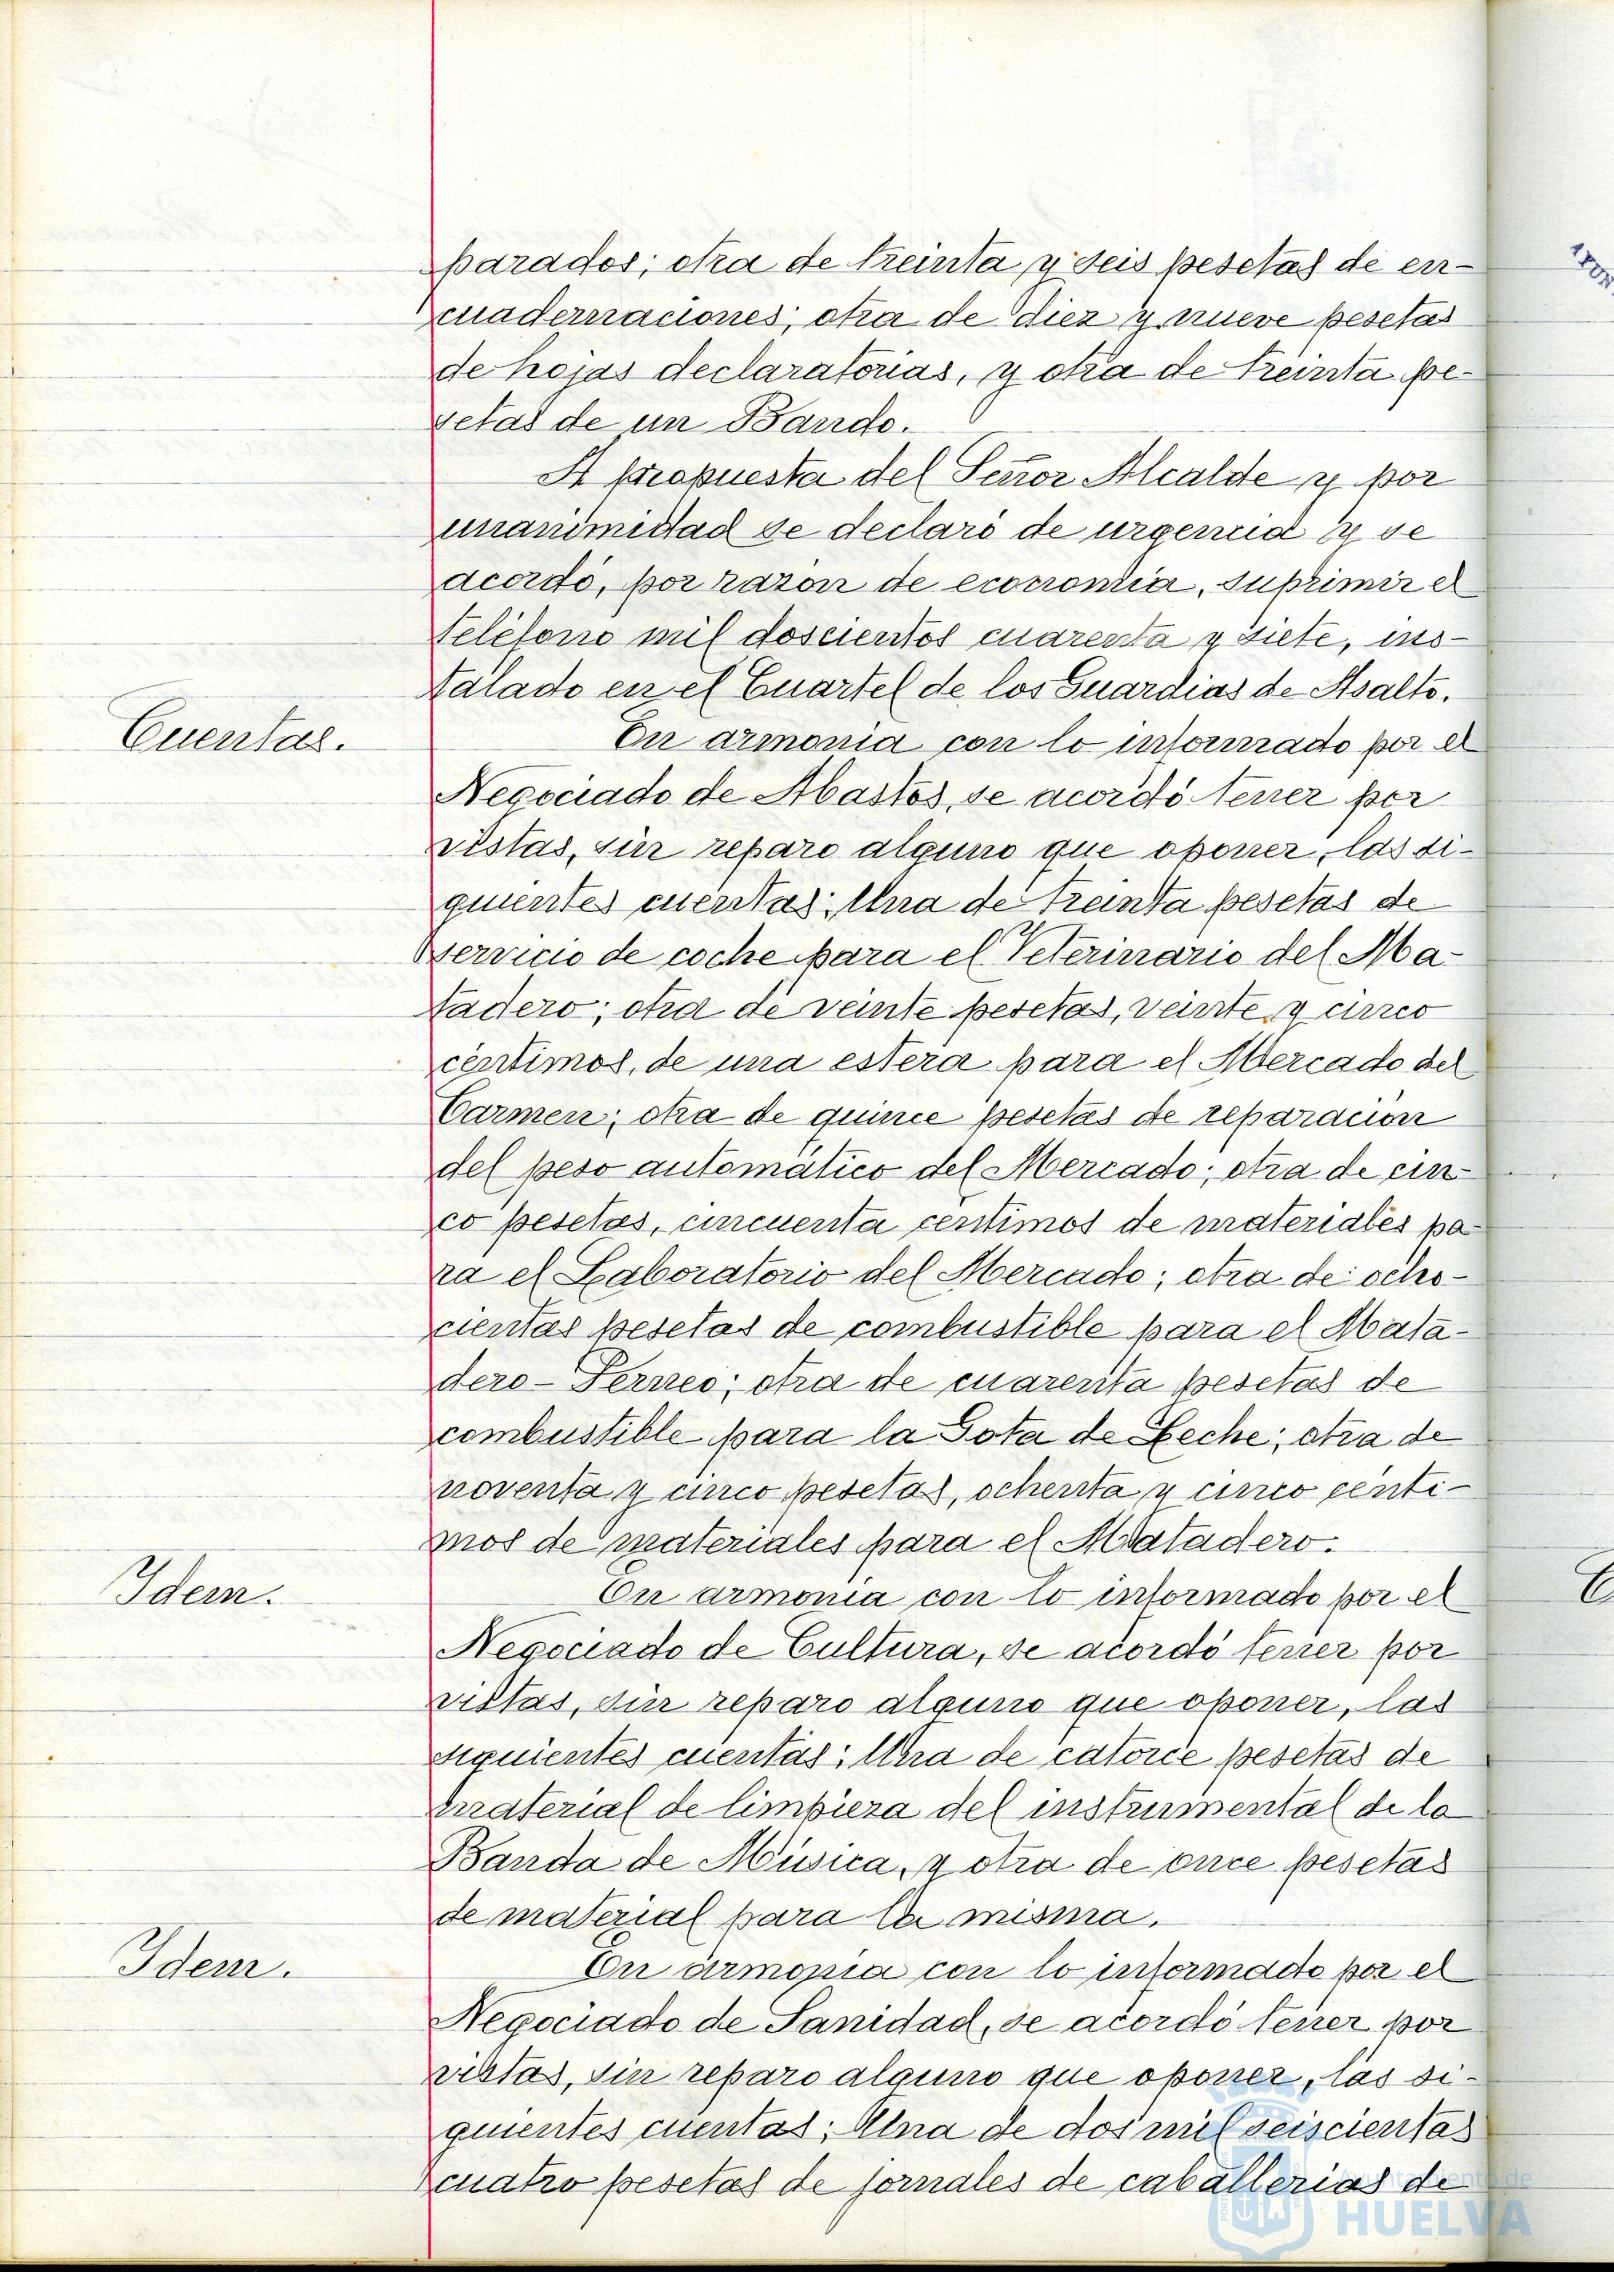 parados; otra de treinta y seis pesetas de en-
cuadernaciones; otra de diez y nueve pesetas
de hojas declaratorias, y otra de treinta pe-
setas de un Bando.
A propuesta del Señor Alcalde y por
unanimidad se declaró de urgencia y se
acordó, por razón de economía, suprimir el
teléfono mil doscientos cuarenta y siete, ins-
talado en el Cuartel de los Guardias de Asalto.
Cuentas.
En armonía con lo informado por el
Negociado de Abastos, se acordó tener por
vistas, sin reparo alguno que oponer, las si-
guientes cuentas: Una de treinta pesetas de
servicio de coche para el Veterinario del Ma-
tadero; otra de veinte pesetas, veinte y cinco
céntimos, de una estera para el Mercado del
Carmen; otra de quince pesetas de reparación
del peso automático del Mercado; otra de cin-
co pesetas, cincuenta céntimos de materiales pa-
ra el Laboratorio del Mercado; otra de ocho-
cientas pesetas de combustible para el Mata-
dero-Perneo; otra de cuarenta pesetas de
combustible para la Gota de Leche; otra de
noventa y cinco pesetas, ochenta y cinco cénti-
mos de materiales para el Matadero.
Idem.
En armonía con lo informado por el
Negociado de Cultura, se acordó tener por
vistas, sin reparo alguno que oponer, las
siguientes cuentas: Una de catorce pesetas de
material de limpieza del instrumental de la
Banda de Música, y otra de once pesetas
de material para la misma.
Idem.
En armonía con lo informado por el
Negociado de Sanidad, se acordó tener por
vistas, sin reparo alguno que oponer, las si-
guientes cuentas: Una de dos mil seiscientas
cuatro pesetas de jornales de caballerías de
Ayuntamiento de
HUELVA